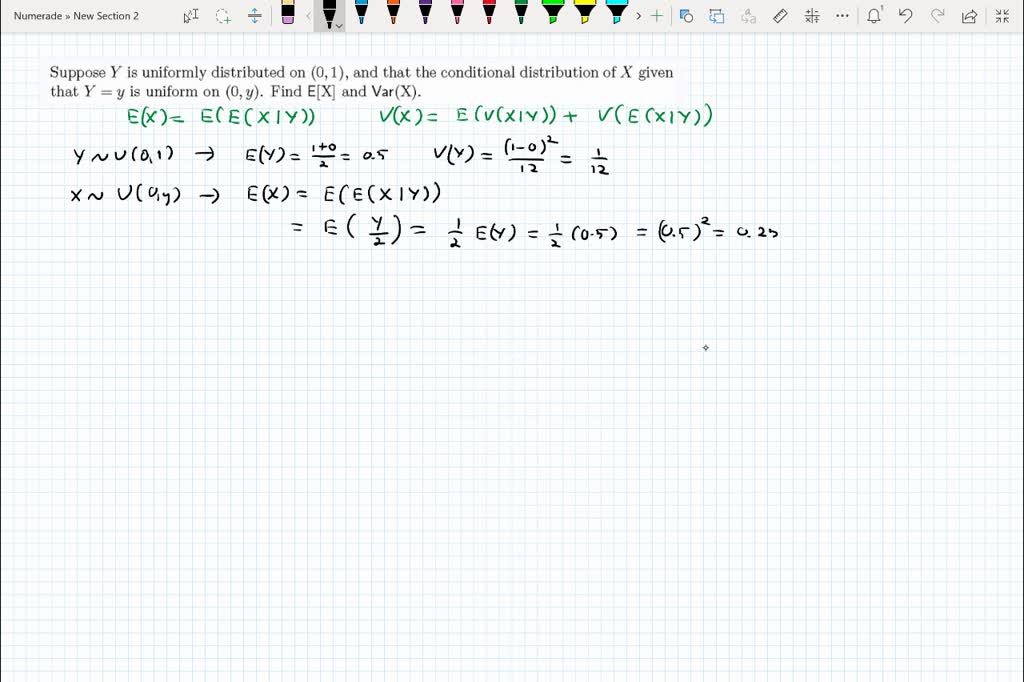 Numerade » New Section 2
Suppose Y is uniformly distributed on (0, 1), and that the conditional distribution of X given
that Y = y is uniform on (0, y). Find E[X] and Var(X).
E(X) = E(E(X|Y)) V(X) = E(V(X|Y)) + V(E(X|Y))
Y ~ U(0,1) → E(Y) = 1+0/2 = 0.5 V(Y) = (1-0)²/12 = 1/12
X ~ U(0,y) → E(X) = E(E(X|Y))
= E(Y/2) = 1/2 E(Y) = 1/2 (0.5) = (0.5)² = 0.25